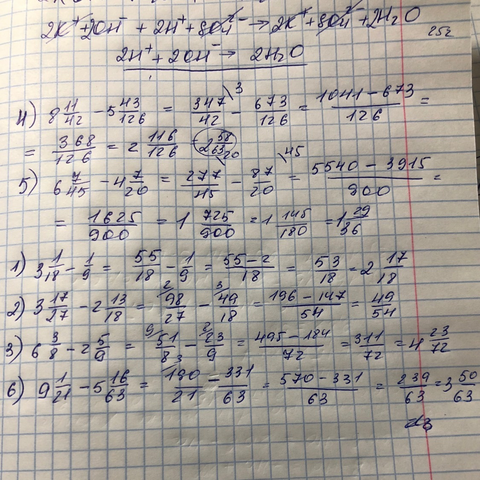 2K⁺ + 2OH⁻ + 2H⁺ + SO₄²⁻ → 2K⁺ + SO₄²⁻ + 2H₂O
2H⁺ + 2OH⁻ → 2H₂O
4) 8 11/42 − 5 43/126 = 347/42 \3 − 673/126 = 1041−673/126 =
= 368/126 = 2 116/126 2 58/63
5) 6 7/45 − 4 7/20 = 277/45 \20 − 87/20 \45 = 5540−3915/900 =
= 1625/900 = 1 725/900 = 1 145/180 = 1 29/36
1) 3 1/18 − 1/9 = 55/18 − 1/9 = 55−2/18 = 53/18 = 2 17/18
2) 3 17/27 − 2 13/18 = 2 98/27 − 3 49/18 = 196−147/54 = 49/54
3) 6 3/8 − 2 5/9 = 9 51/8 − 23/9 = 495−184/72 = 311/72 = 4 23/72
6) 9 1/21 − 5 16/63 = 3 190/21 − 331/63 = 570−331/63 = 239/63 = 3 50/63